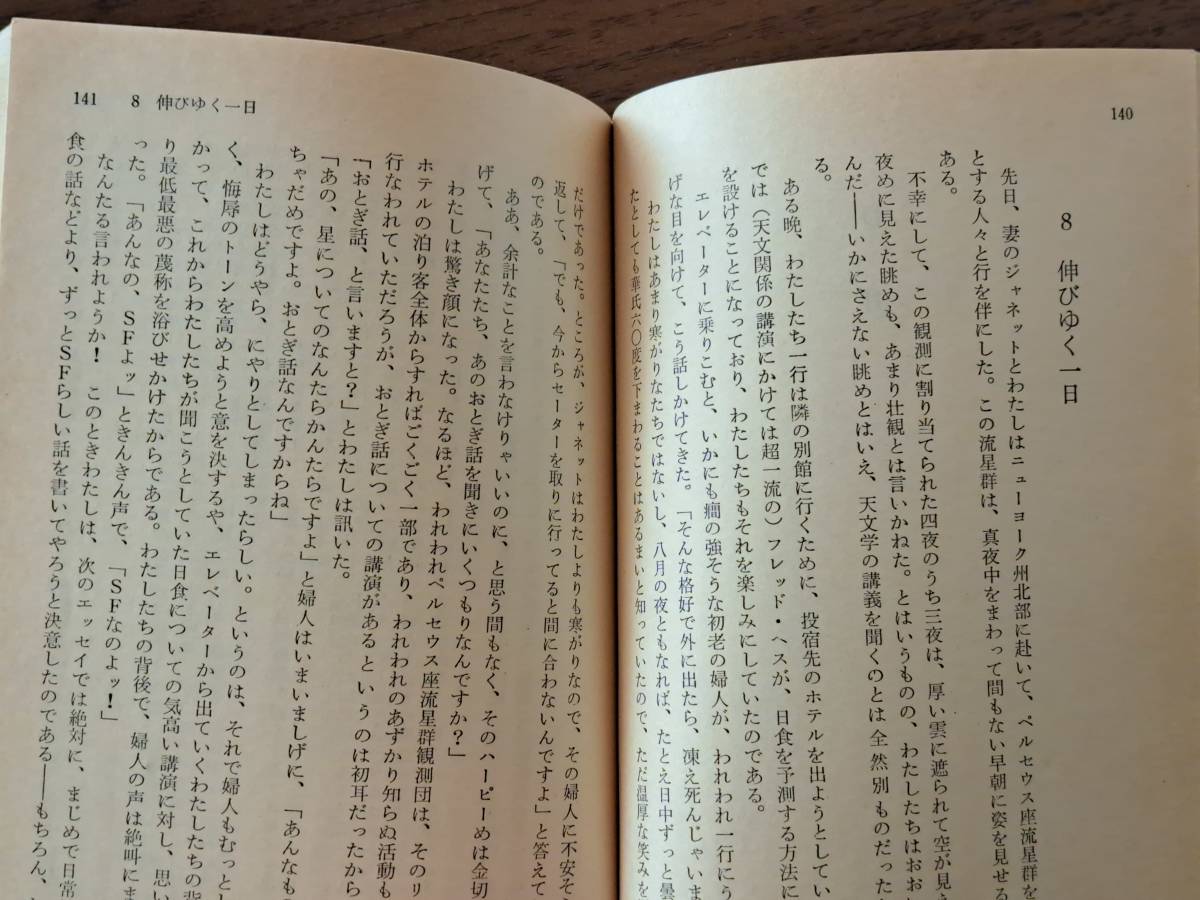 140
8 伸びゆく一日
先日、妻のジャネットとわたしはニューヨーク州北部に赴いて、ペルセウス座流星群を
とする人々と行を伴にした。この流星群は、真夜中をまわって間もない早朝に姿を見せる
ある。
不幸にして、この観測に割り当てられた四夜のうち三夜は、厚い雲に遮られて空が見え
夜めに見えた眺めも、あまり壮観とは言いかねた。とはいうものの、わたしたちはおおい
んだ――いかにさえない眺めとはいえ、天文学の講義を聞くのとは全然別ものだった
る。
ある晩、わたしたち一行は隣の別館に行くために、投宿先のホテルを出ようとしてい
では（天文関係の講演にかけては超一流の）フレッド・ヘスが、日食を予測する方法に
を設けることになっており、わたしたちもそれを楽しみにしていたのである。
エレベーターに乗りこむと、いかにも癇の強そうな初老の婦人が、われわれ一行にう
げな目を向けて、こう話しかけてきた。「そんな格好で外に出たら、凍え死んじゃいま
わたしはあまり寒がりなたちではないし、八月の夜ともなれば、たとえ日中ずっと曇
たとしても華氏六〇度を下まわることはあるまいと知っていたので、ただ温厚な笑みを
141 8 伸びゆく一日
だけであった。ところが、ジャネットはわたしよりも寒がりなので、その婦人に不安そ
返して、「でも、今からセーターを取りに行ってると間に合わないんですよ」と答えて
のである。
ああ、余計なことを言わなけりゃいいのに、と思う間もなく、そのハーピーめは金切
げて、「あなたたち、あのおとぎ話を聞きにいくつもりなんですか？」
わたしは驚き顔になった。なるほど、われわれペルセウス座流星群観測団は、そのリ
ホテルの泊り客全体からすればごくごく一部であり、われわれのあずかり知らぬ活動も
行なわれていただろうが、おとぎ話についての講演があるというのは初耳だったから
「おとぎ話、と言いますと？」とわたしは訊いた。
「あの、星についてのなんたらかんたらですよ」と婦人はいまいましげに、「あんなも
ちゃだめですよ。おとぎ話なんですからね」
わたしはどうやら、にやりとしてしまったらしい。というのは、それで婦人もむっとし
く、侮辱のトーンを高めようと意を決するや、エレベーターから出ていくわたしたちの背
かって、これからわたしたちが聞こうとしていた日食についての気高い講演に対し、思い
り最低最悪の蔑称を浴びせかけたからである。わたしたちの背後で、婦人の声は絶叫にま
った。「あんなの、SFよッ」ときんきん声で、「SFなのよッ！」
なんたる言われようか！ このときわたしは、次のエッセイでは絶対に、まじめで日常
食の話などより、ずっとSFらしい話を書いてやろうと決意したのである――もちろん、